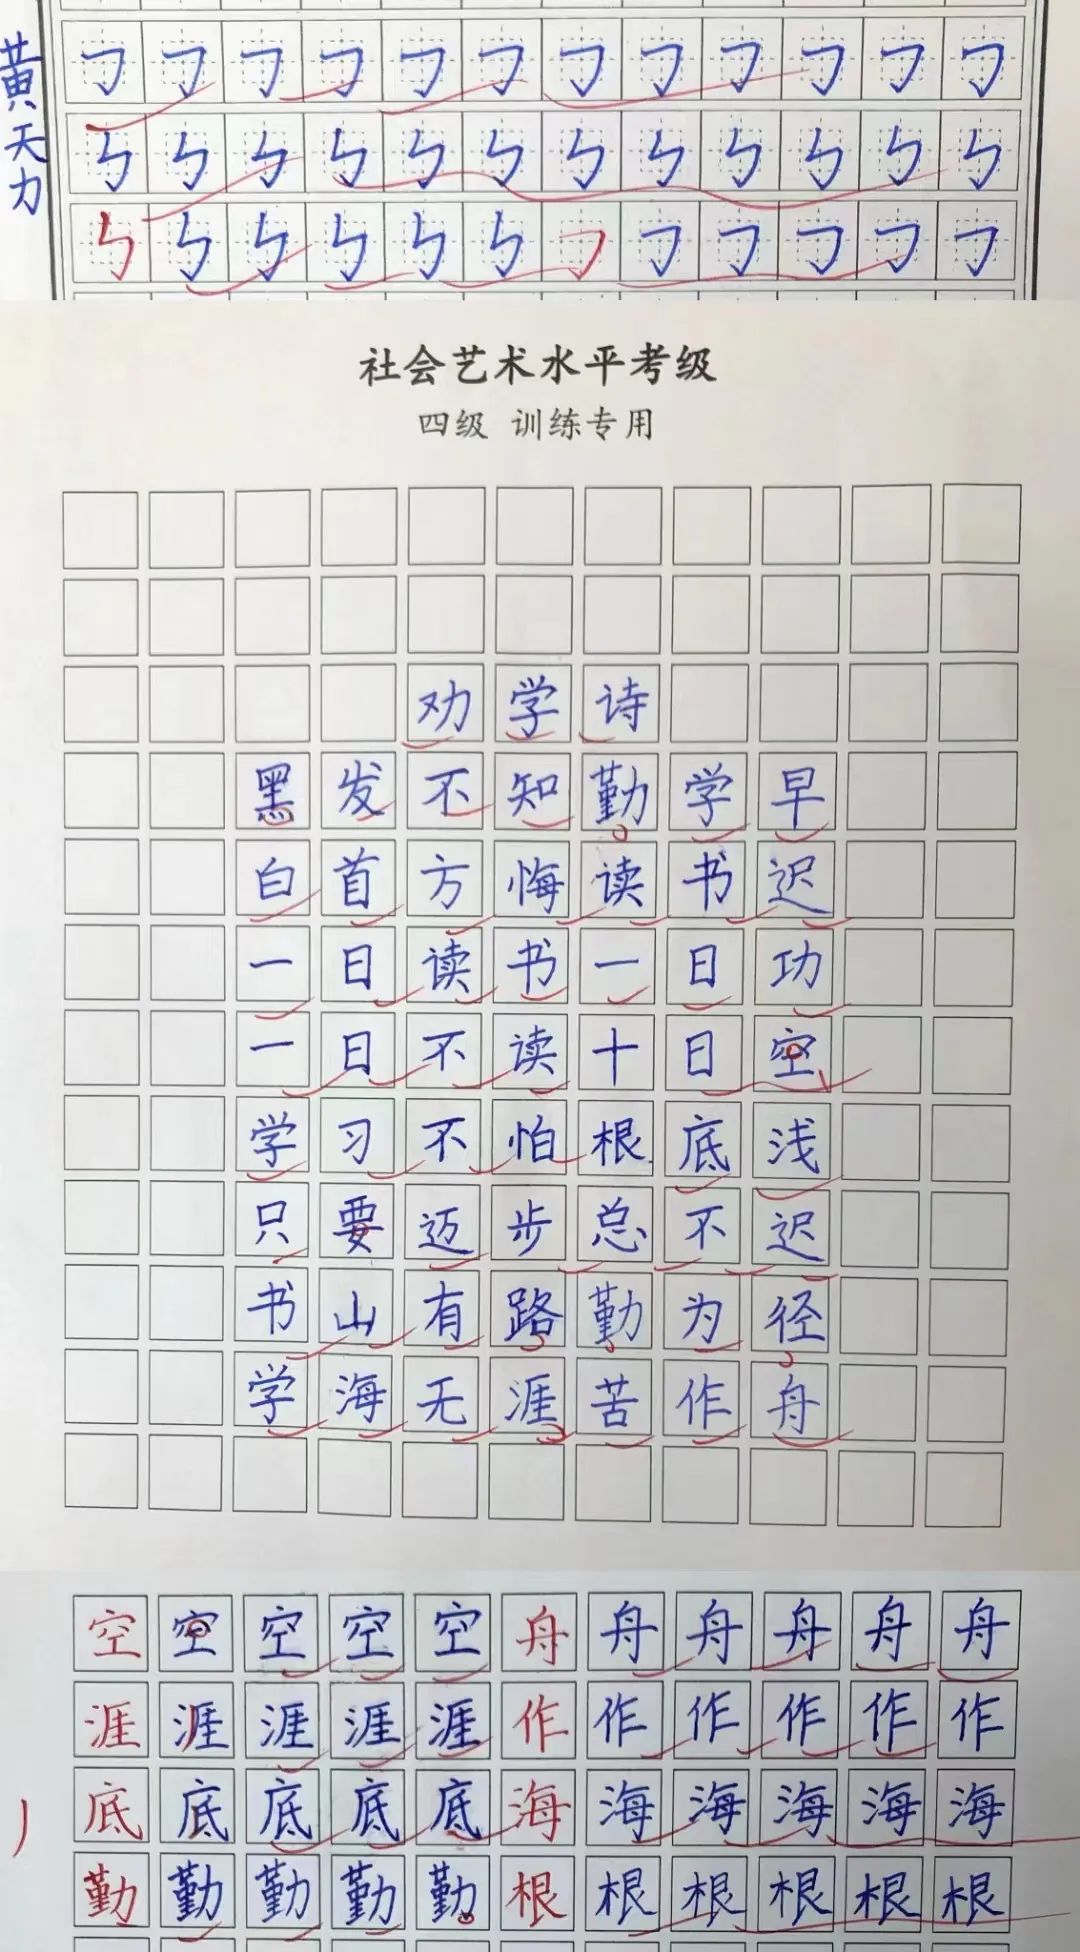 黄天力
㇆㇆㇆㇆㇆㇆㇆㇆㇆㇆㇆㇆
㇉㇉㇉㇉㇉㇉㇉㇉㇉㇉㇉㇉
㇉㇉㇉㇉㇉㇉㇆㇆㇆㇆㇆㇆
社会艺术水平考级
四级 训练专用
劝学诗
黑发不知勤学早
白首方悔读书迟
一日读书一日功
一日不读十日空
学习不怕根底浅
只要迈步总不迟
书山有路勤为径
学海无涯苦作舟
空空空空空舟舟舟舟舟舟
涯涯涯涯涯作作作作作作
底底底底底海海海海海海
勤勤勤勤勤根根根根根根